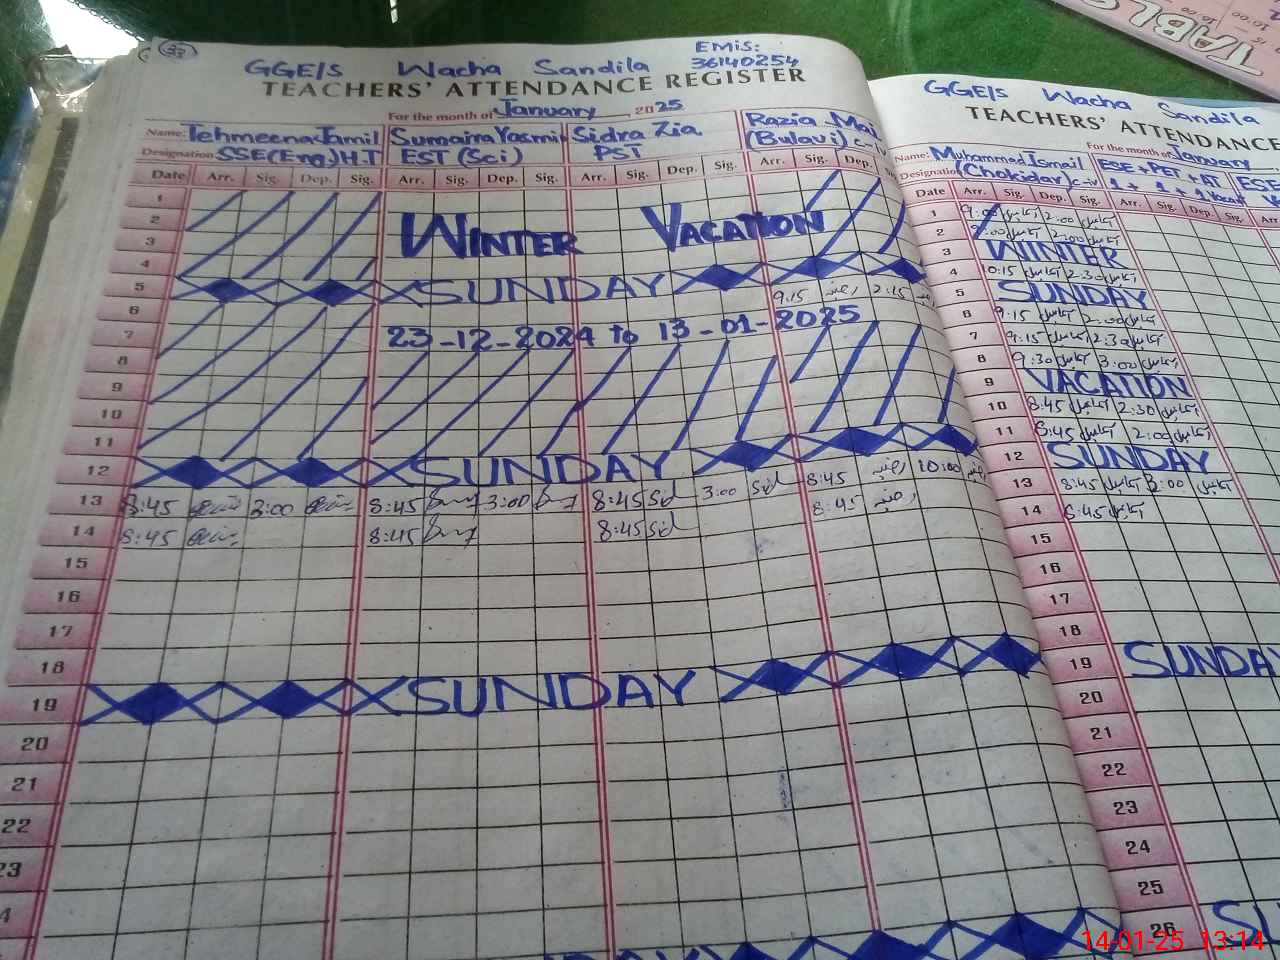 33
EMIS:
GGE/S Wacha Sandila 36140254
TEACHERS' ATTENDANCE REGISTER
For the month of January, 2025
Name: Tehmeena Jamil Sumaira Yasmi Sidra Zia Razia Mai
Designation SSE(Eng)H.T EST (Sci) PST (Bulavi)
Date Arr. Sig. Dep. Sig. Arr. Sig. Dep. Sig. Arr. Sig. Dep. Sig. Arr. Sig. Dep.
1
2 WINTER VACATION
3
4
5 SUNDAY
6 9:15 2:15
7 23-12-2024 to 13-01-2025
8
9
10
11
12 SUNDAY
13 8:45 3:00 8:45 3:00 8:45 Sid 3:00 Sid 8:45 رضیہ 10:00 رضیہ
14 8:45 8:45 8:45 Sid 8:45 رضیہ
15
16
17
18
19 SUNDAY
20
21
22
23
4
GGE/S Wacha Sandila
TEACHERS' ATTENDANCE
For the month of January
Name: Muhammad Ismail ESE + PET + AT ESE
Designatio (Chokidar) C-iv 1 + 1 + 1
Date Arr. Sig. Dep. Sig. Arr. Sig. Dep. Sig. Arr.
1 9:00 2:00
2 9:00 2:00
3 WINTER
4 10:15 2:30
5 SUNDAY
6 9:15 2:00
7 9:15 2:30
8 9:30 3:00
9 VACATION
10 8:45 2:30
11 8:45 2:00
12 SUNDAY
13 8:45 3:00
14 8:45
15
16
17
18
19 SUNDAY
20
21
22
23
24
25
26 SU
TABLE
14-01-25 13:14